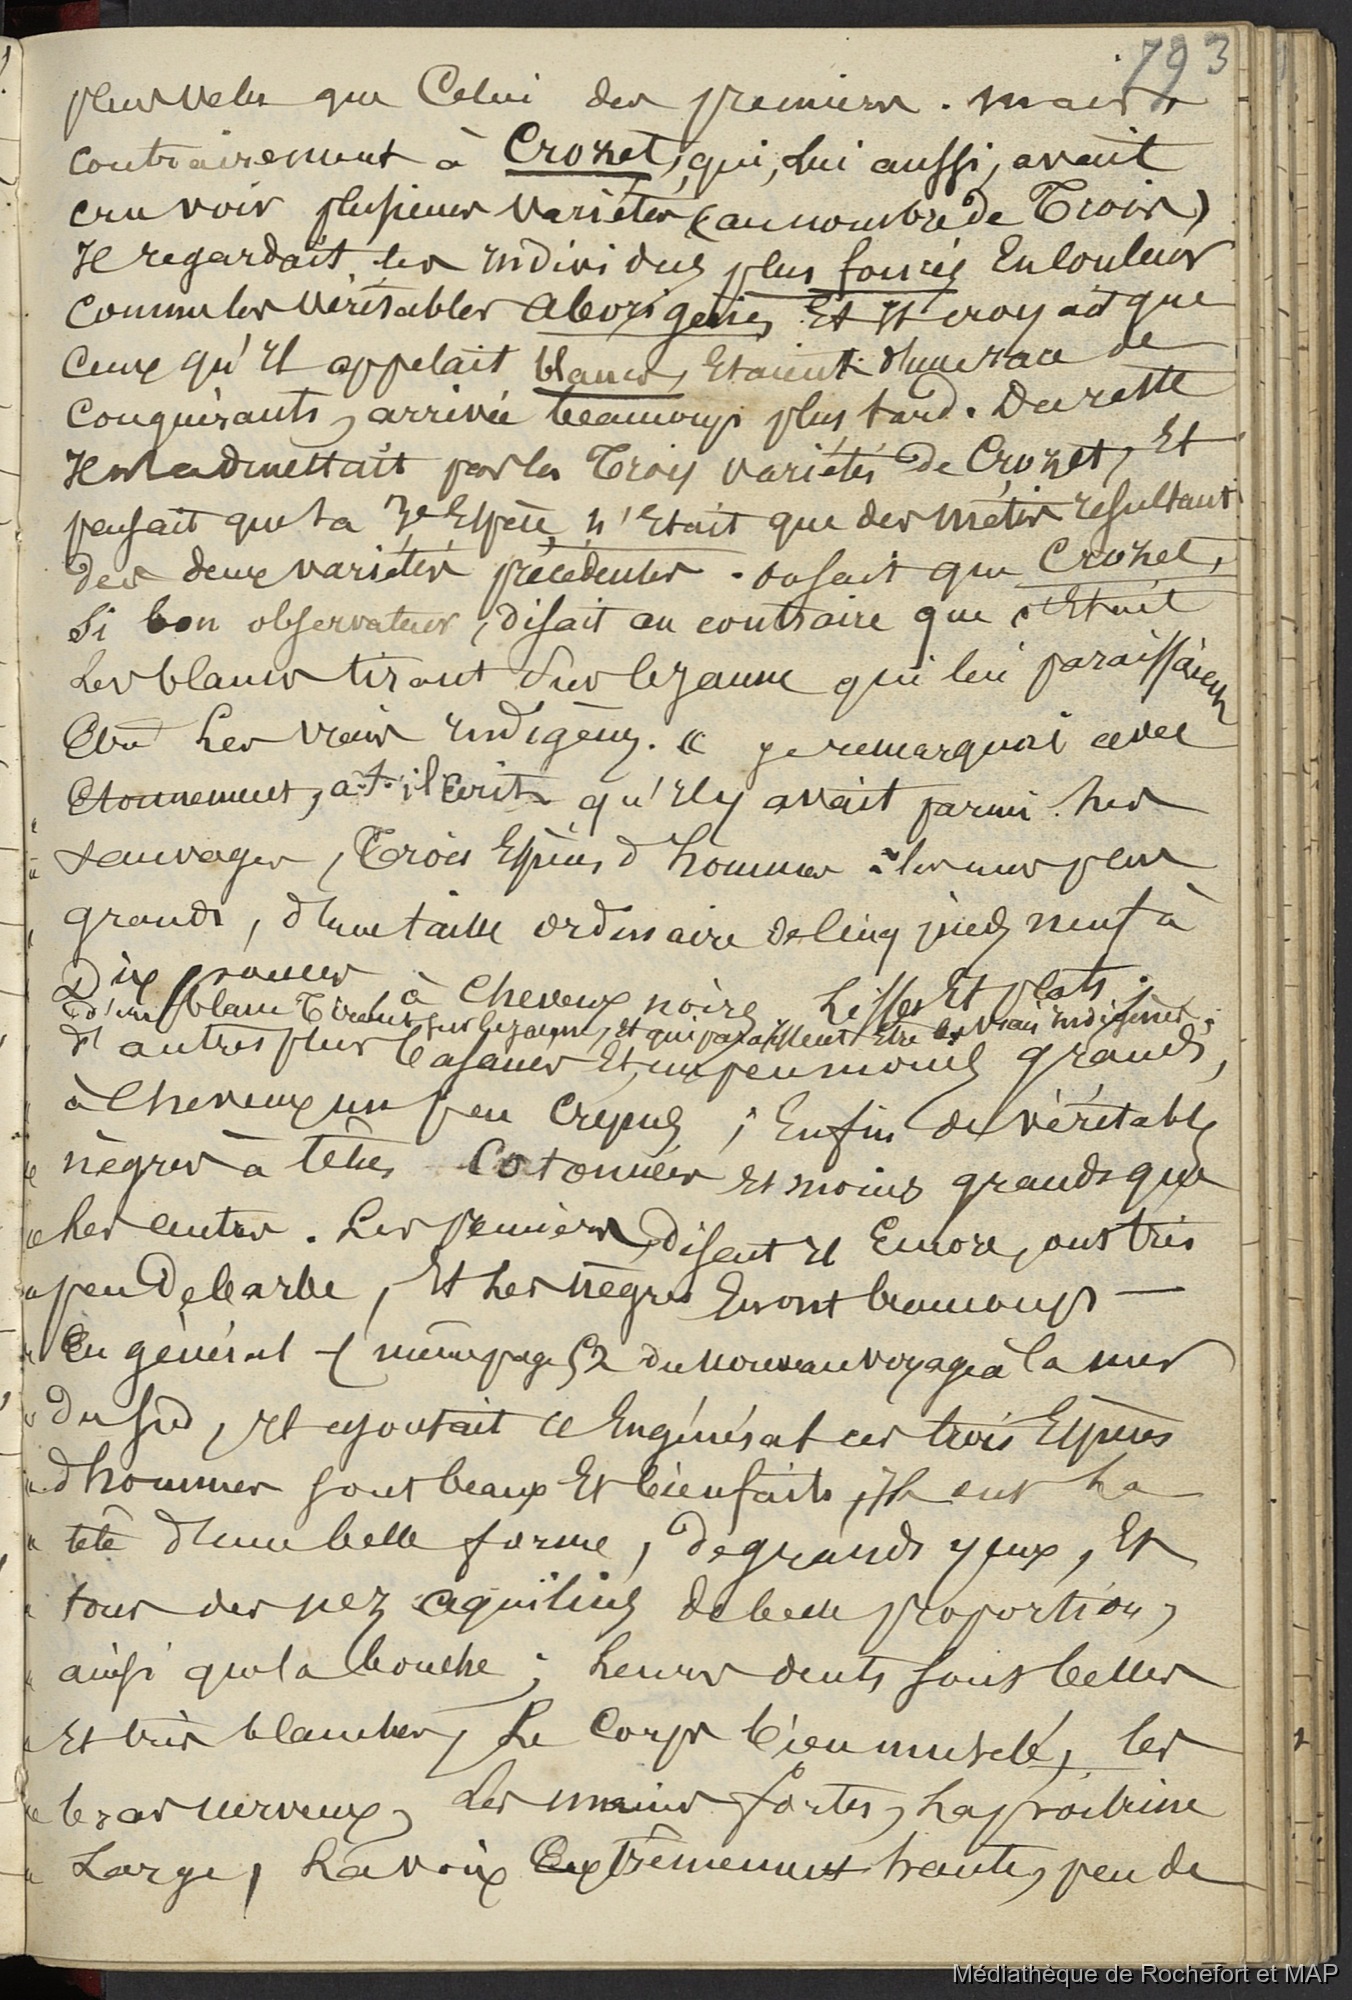 793
plus velu que Celui des premiers. mais
contrairement à Crozet, qui, lui aussi, avait
cru voir plusieurs variétés (au nombre de Trois)
Il regardait les individus plus foncés En Couleur
comme les véritables aborigènes Et Il croyait que
ceux qu'Il appelait blancs, Etaient d'une race de
Conquérants, arrivée beaucoup plus tard. Du reste
Il n'admettait pas les Trois variétés de Crozet, Et
pensait que la 3e Espèce n'Etait que des métis résultant
des deux variétés précédentes. on sait que Crozet,
Si bon observateur, disait au contraire que c'Etait
Les blancs tirant Sur le jaune qui lui paraissaient
Etre Les vrais Indigènes. « je remarquai avec
Etonnement, a-t-il Ecrit, qu'Il y avait parmi Les
sauvages, Trois Espèces d'hommes : les uns plus
grands, d'une taille ordinaire de Cinq pieds neuf à
Dix pouces, à Cheveux noirs, Lisses Et plats,
d'un blanc Tirant sur le jaune, et qui paraissent Etre les vrais indigènes ;
d'autres plus basanés Et un peu moins grands,
à Cheveux un peu Crepus ; Enfin de véritables
nègres à têtes Cotonnées Et moins grands que
Les autres. Les premiers, disent Il Encore, ont très
peu De barbe, Et Les nègres En ont beaucoup —
En général (même page 52 du nouveau voyage à la mer
du Sud, Il ajoutait « En général ces trois Espèces
d'hommes sont beaux Et bien faits, Ils ont La
tête d'une belle forme, de grands yeux, Et
tous des nez aquilins de belle proportion,
ainsi que la bouche ; Leurs dents sont belles
Et très blanches, Le Corps bien musclé, les
bras nerveux, Les mains fortes, La poitrine
Large, La voix Extrêmement haute, peu de
Médiathèque de Rochefort et MAP